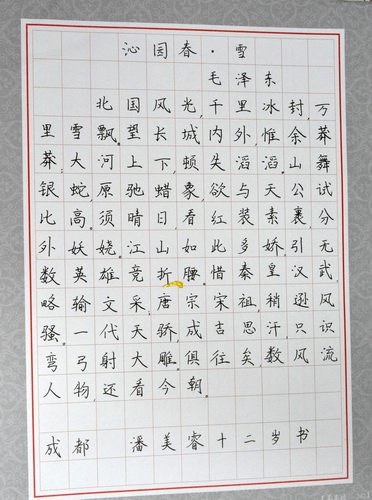 沁园春·雪
毛泽东
北国风光,千里冰封,万
里雪飘。望长城内外,惟余莽
莽;大河上下,顿失滔滔。山舞
银蛇,原驰蜡象,欲与天公试
比高。须晴日,看红装素裹,分
外妖娆。江山如此多娇,引无
数英雄竞折腰。惜秦皇汉武,
略输文采,唐宗宋祖,稍逊风
骚。一代天骄,成吉思汗,只识
弯弓射大雕。俱往矣,数风流
人物,还看今朝。
成都 潘美睿十二岁书